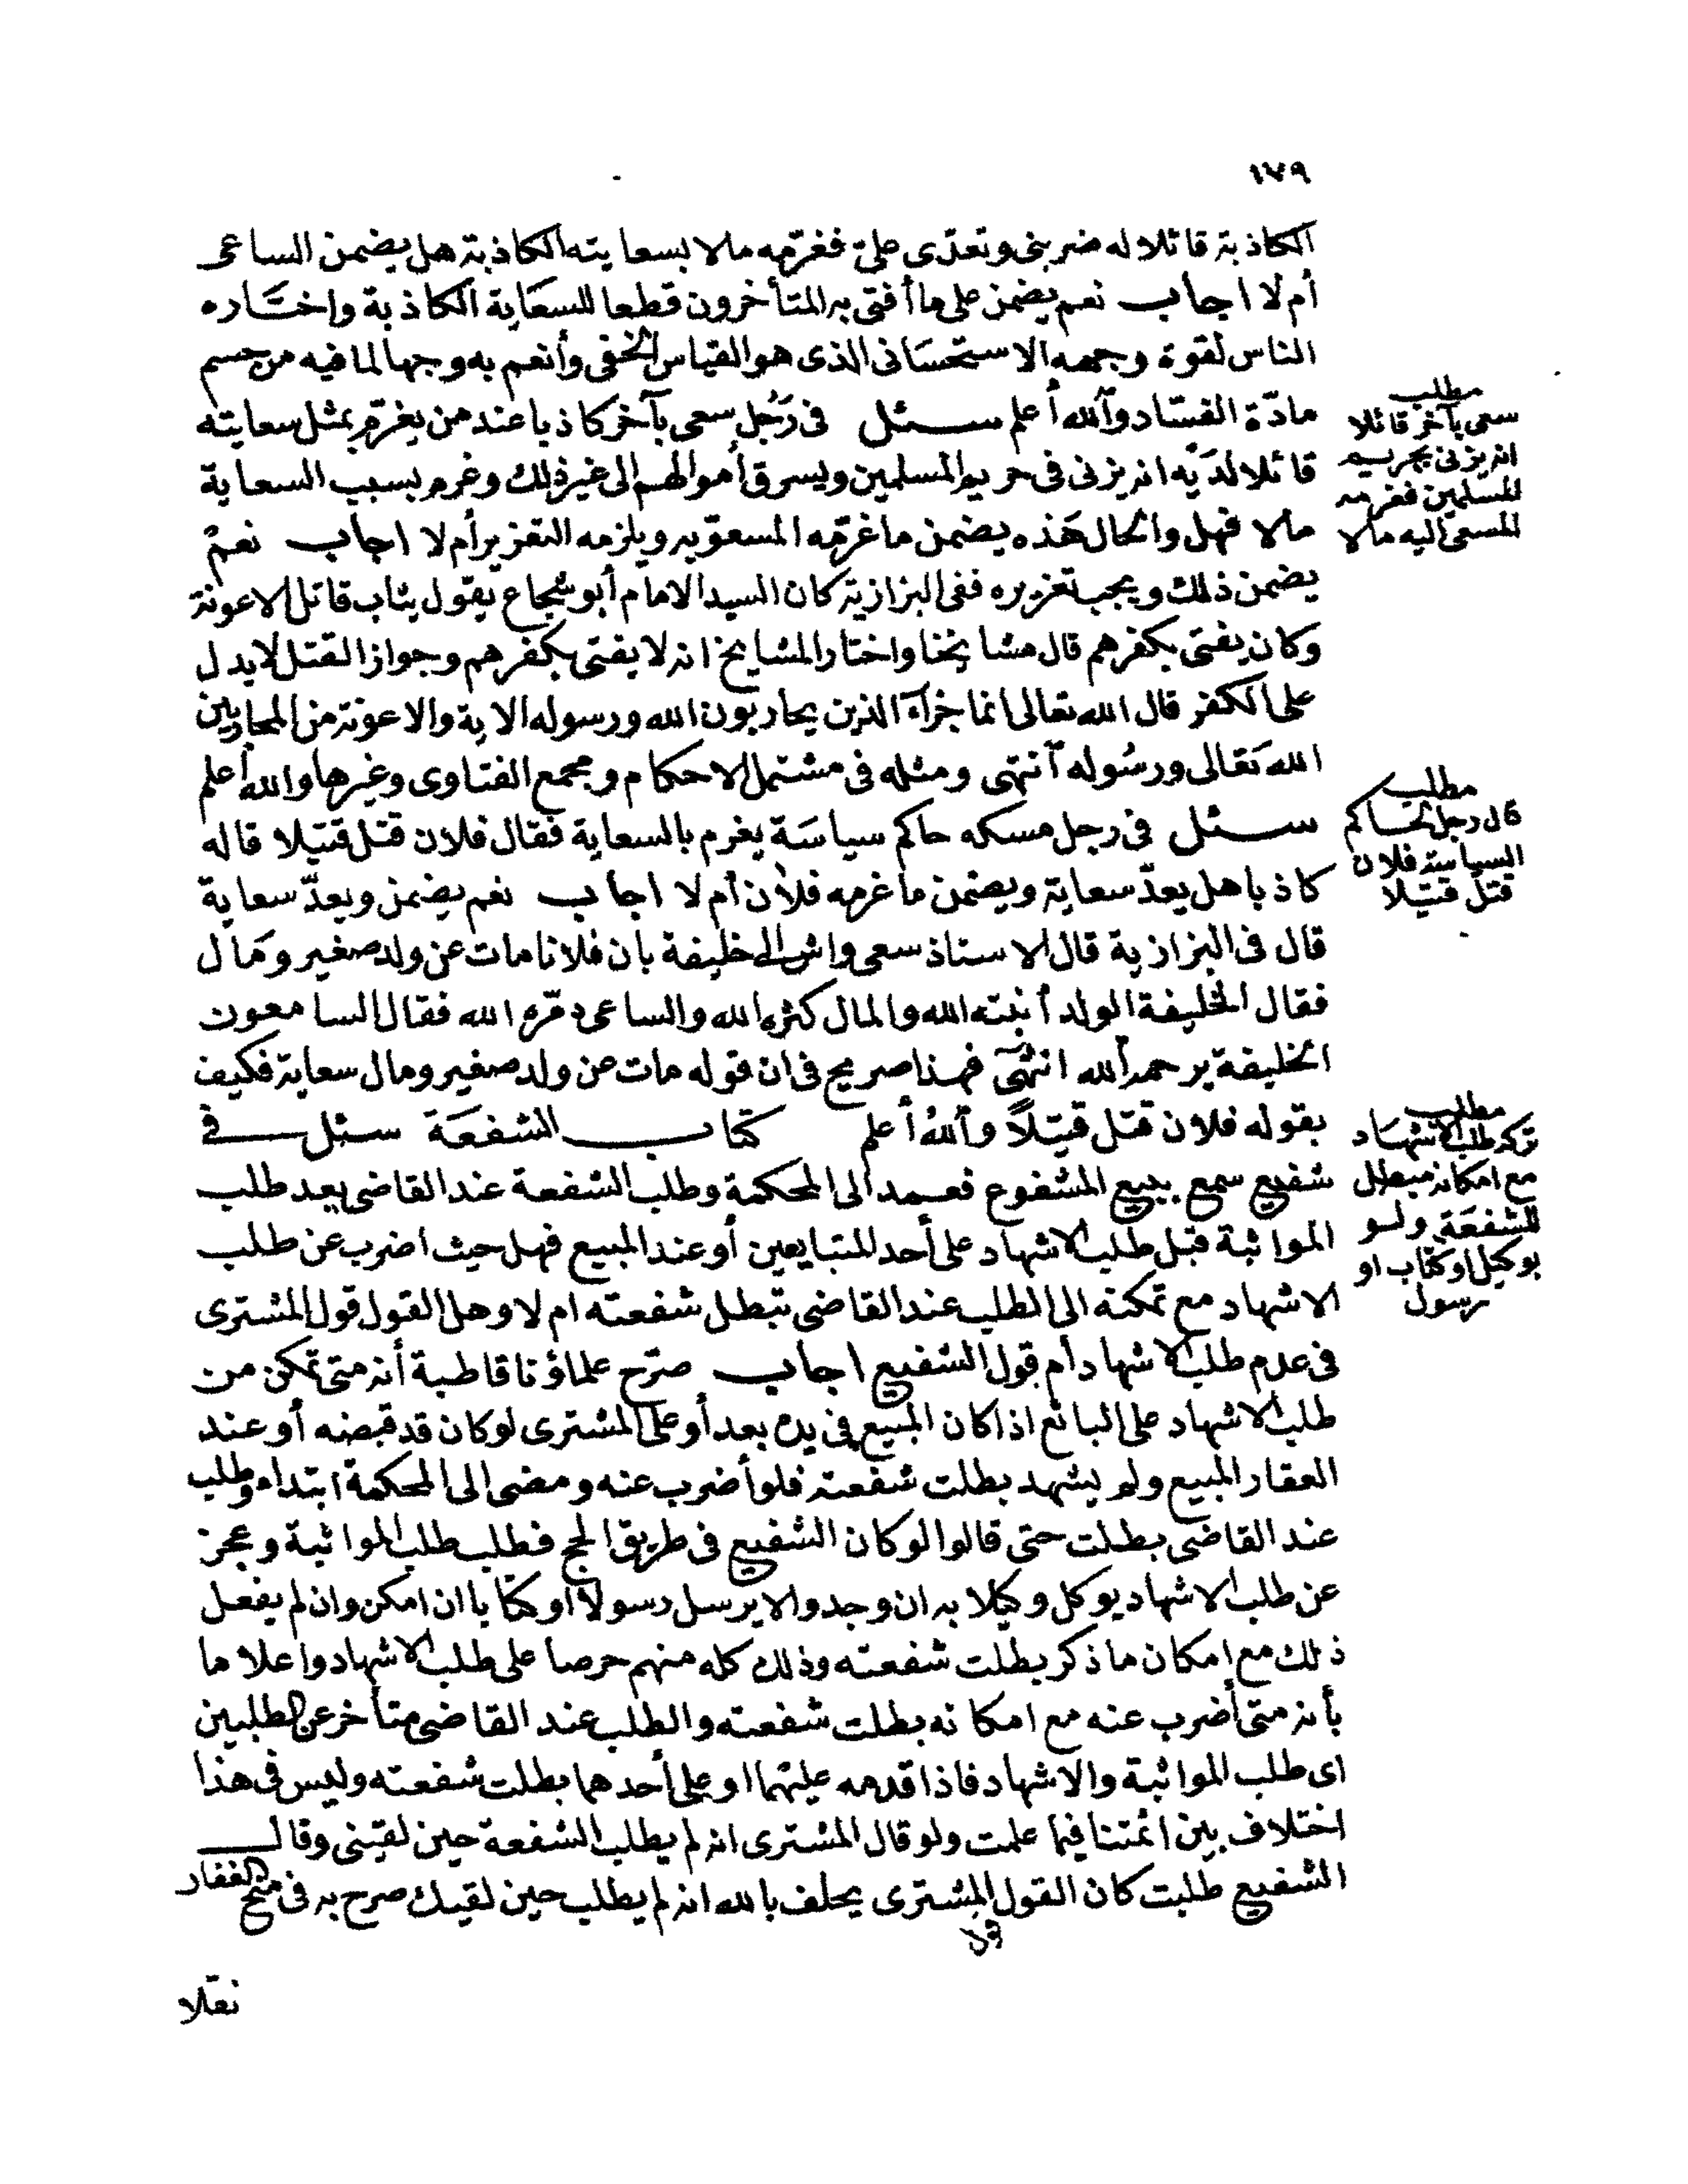 ١٧٩
الكاذبة قائلا له ضربنى وتعدّى علىّ فغرّمه مالا بسعايته الكاذبة هل يضمن الساعى
أم لا اجاب نعم يضمن على ما أفتى به المتأخرون قطعا للسعاية الكاذبة واختاره
الناس لقوة وجهه الاستحسانى الذى هو القياس الخفى وأنعم به وجها لما فيه من حسم
مادّة الفساد والله أعلم سئل فى رجل سعى بآخر كاذبا عند من يغرّم بمثل سعايته
قائلا لديه انه يزنى فى حريم المسلمين ويسرق أموالهم الى غير ذلك وغرم بسبب السعاية
مالا فهل والحال هذه يضمن ما غرّمه المسعوّ به ويلزمه التعزير أم لا اجاب نعم
يضمن ذلك ويجب تعزيره ففى البزازية كان السيد الامام أبو شجاع يقول يثاب قاتل الاعونة
وكان يفتى بكفرهم قال مشايخنا واختار المشايخ انه لا يفتى بكفرهم وجواز القتل لا يدل
على الكفر قال الله تعالى انما جزاء الذين يحاربون الله ورسوله الاية والاعونة من المحاربين
الله تعالى ورسوله انتهى ومثله فى مشتمل الاحكام ومجمع الفتاوى وغيرها والله أعلم
سئل فى رجل مسكه حاكم سياسة يغرم بالسعاية فقال فلان قتل قتيلا قاله
كاذبا هل يعدّ سعاية ويضمن ما غرمه فلان أم لا اجاب نعم يضمن ويعدّ سعاية
قال فى البزازية قال الاستاذ سعى واش الى خليفة بان فلانا مات عن ولد صغير ومال
فقال الخليفة الولد أنبته الله والمال كثره الله والساعى دمّره الله فقال السامعون
الخليفة يرحمه الله انتهى فهذا صريح فى ان قوله مات عن ولد صغير ومال سعاية فكيف
بقوله فلان قتل قتيلاً والله أعلم كتاب الشفعة سئل فى
شفيع سمع ببيع المشفوع فعمد الى المحكمة وطلب الشفعة عند القاضى بعد طلب
المواثبة قبل طلب الاشهاد على أحد المتبايعين أو عند المبيع فهل حيث اضرب عن طلب
الاشهاد مع تمكنه الى الطلب عند القاضى تبطل شفعته ام لا وهل القول قول المشترى
فى عدم طلب الاشهاد أم قول الشفيع اجاب صرّح علماؤنا قاطبة أنه متى تمكن من
طلب الاشهاد على البائع اذا كان المبيع فى يده بعد أو على المشترى لو كان قد قبضه أو عند
العقار المبيع ولم يشهد بطلت شفعته فلو أضرب عنه ومضى الى المحكمة ابتداء وطلب
عند القاضى بطلت حتى قالوا لو كان الشفيع فى طريق الحج فطلب طلب المواثبة وعجز
عن طلب الاشهاد يوكل وكيلا به ان وجد والا يرسل رسولا او كتابا ان امكن وان لم يفعل
ذلك مع امكان ما ذكر بطلت شفعته وذلك كله منهم حرصا على طلب الاشهاد واعلاما
بأنه متى أضرب عنه مع امكانه بطلت شفعته والطلب عند القاضى متأخر عن الطلبين
اى طلب المواثبة والاشهاد فاذا قدمه عليهما او على أحدهما بطلت شفعته وليس فى هذا
اختلاف بين ائمتنا فيما علمت ولو قال المشترى انه لم يطلب الشفعة حين لقينى وقال
الشفيع طلبت كان القول للمشترى يحلف بالله انه لم يطلب حين لقيك صرح به فى منح الغفار
نقلا
مطلب
سعى بآخر قائلا
انه يزنى بحريم
المسلمين فغرمه
المسعىّ اليه مالا
مطلب
قال رجل لحاكم
السياسة فلان
قتل قتيلا
مطلب
تركه طلب الاشهاد
مع امكانه مبطل
للشفعة ولو
بوكيل او كتاب او
رسول